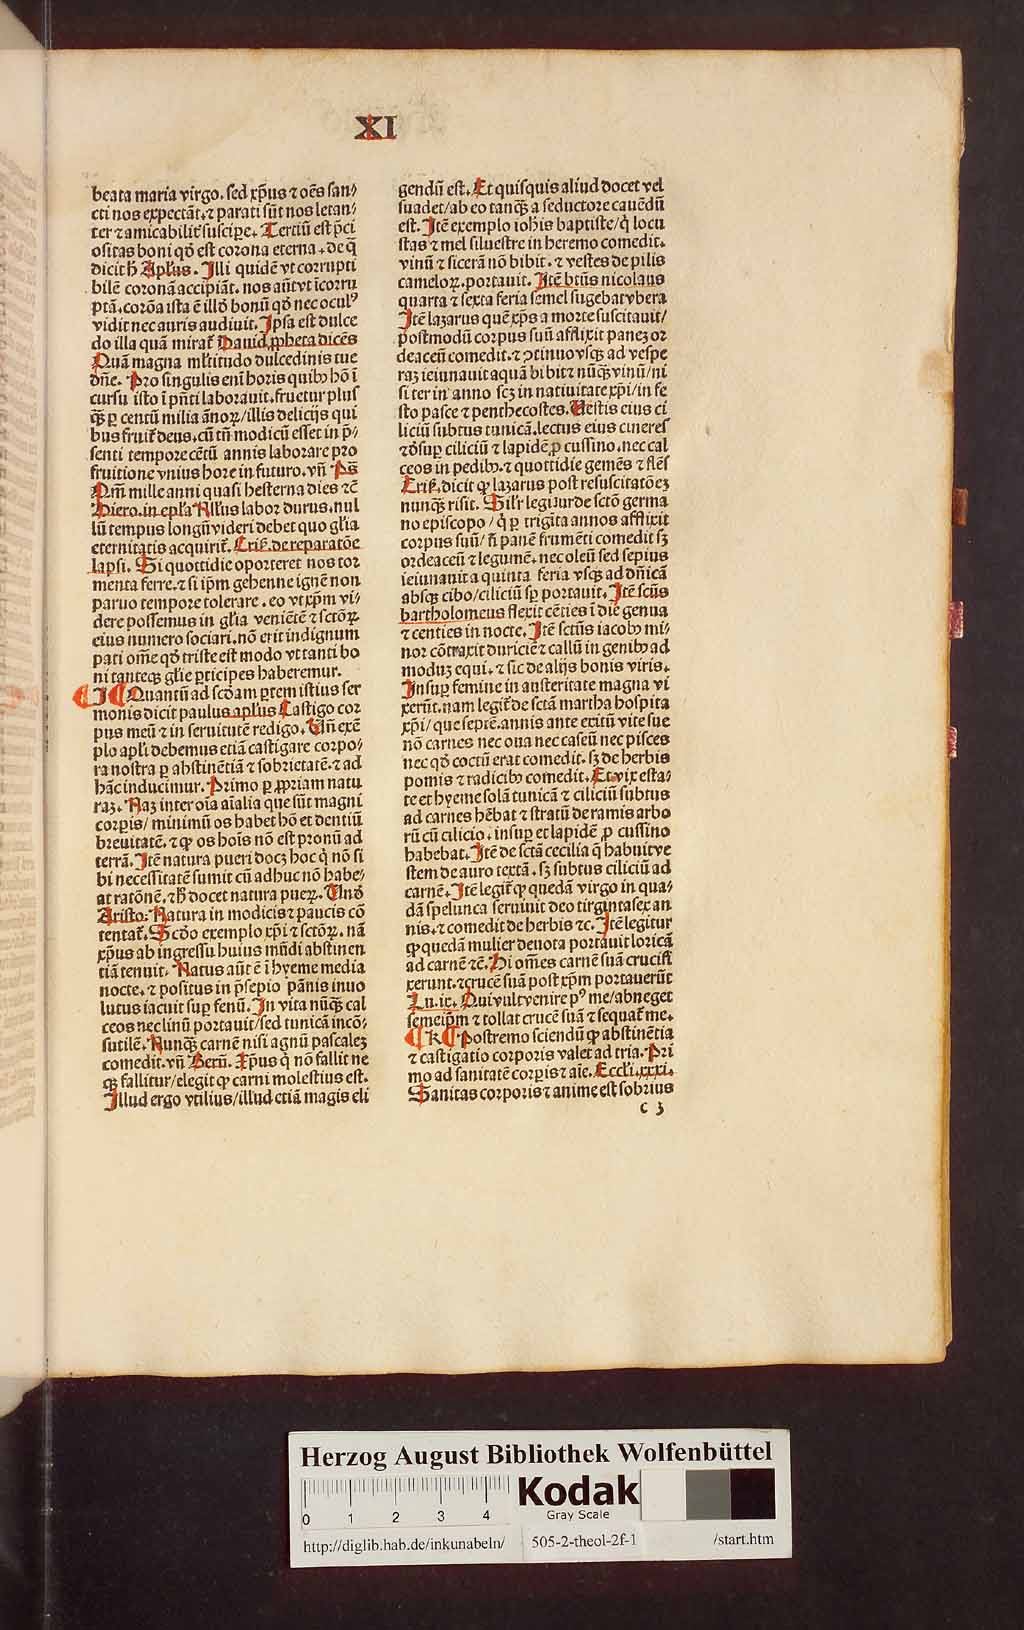 XI
beata maria virgo. sed xp̄us ⁊ oēs san⸗
cti nos expectāt. ⁊ parati sūt nos letan⸗
ter ⁊ amicabilit̄ suscipe. Tertiū est p̄ci
ositas boni qd̓ est corona eterna. de q̄
dicit h̄ Apl̄us. Illi quidē vt corrupti
bilē coronā accipiāt. nos aūt vt īcorru
ptā. corōa ista ē illd̓ bonū qd̓ nec ocul⁹
vidit nec auris audiuit. Ipsa est dulce
do illa quā mirat̄ Dauid ꝓpheta dicēs
Quā magna ml̄titudo dulcedinis tue
dn̄e. Pro singulis eni horis quibꝰ hō ī
cursu isto ī pn̄ti laborauit. fruetur plus
qꝫ̄ ꝑ centū milia ānoꝝ / illis delicijs qui
bus fruit̄ deus. cū tn̄ modicū esset in p̄⸗
senti tempore cētū annis laborare pro
fruitione vnius hore in futuro. vn̄ Ps̄
Qm̄ mille anni quasi hesterna dies ⁊c̄
Hiero. in epl̄a Null̓us labor durus. nul
lū tempus longū videri debet quo gl̄ia
eternitatis acquirit̄. Criſ. de reparatōe
lapsi. Si quottidie oporteret nos tor
menta ferre. ⁊ si ip̄m gehenne ignē non
paruo tempore tolerare. eo vt xp̄m vi⸗
dere possemus in gl̄ia veniētē ⁊ sctōꝝ
eius numero sociari. nō erit indignum
pati om̄e qd̓ triste est modo vt tanti bo
ni tanteqꝫ gl̄ie ꝑticipes haberemur.
I Quantū ad scd̓am ꝑtem istius ser
monis dicit paulus apl̄us Castigo cor
pus meū ⁊ in seruitutē redigo. Vn̄ exē
plo apl̓i debemus etiā castigare corpo⸗
ra nostra ꝑ abstinētiā ⁊ sobrietatē. ⁊ ad
hāc inducimur. Primo ꝑ ꝓpriam natu
raꝫ. Naꝫ inter oīa aīalia que sūt magni
corꝑis / minimū os habet hō et dentiū
breuitatē. ⁊ ꝙ os hoīs nō est pronū ad
terrā. Itē natura pueri docꝫ hoc q̓ nō si
bi necessitatē sumit cū adhuc nō habe⸗
at ratōnē. ⁊ h̓ docet natura pueꝝ. Vnd̓
Aristo. Natura in modicis ⁊ paucis cō
tentat̄. Scd̓o exemplo xp̄i ⁊ sctōꝝ. nā
xp̄us ab ingressu huius mūdi abstinen
tiā tenuit. Natus aūt ē ī hyeme media
nocte. ⁊ positus in p̄sepio pānis inuo
lutus iacuit suꝑ fenū. In vita nūqꝫ̄ cal
ceos nec linū portauit / sed tunicā incō⸗
sutilē. Nunqꝫ̄ carnē nisi agnū pascaleꝫ
comedit. vn̄ Bern̄. Xp̄us q̓ nō fallit ne
qꝫ fallitur / elegit ꝙ carni molestius est.
Illud ergo vtilius / illud etiā magis eli
gendū est. Et quisquis aliud docet vel
suadet / ab eo tanqꝫ̄ a seductore cauēdū
est. Itē exemplo ioh̓is baptiste / q̓ locu
stas ⁊ mel siluestre in heremo comedit.
vinū ⁊ sicerā nō bibit. ⁊ vestes de pilis
cameloꝝ. portauit. Itē bt̄us nicolaus
quarta ⁊ sexta feria semel sugebat vbera
Itē lazarus quē xp̄s a morte suscitauit /
postmodū corpus suū afflixit paneꝫ or
deaceū comedit. ⁊ ꝯtinuo vsqꝫ ad vespe
raꝫ ieiunauit aquā bibit ⁊ nūqꝫ̄ vinū / ni
si ter in anno scꝫ in natiuitate xp̄i / in fe
sto pasce ⁊ penthecostes. Uestis eius ci
liciū subtus tunicā. lectus eius cineres
⁊ d̓suꝑ ciliciū ⁊ lapidē ꝓ cussino. nec cal
ceos in pedibꝰ. ⁊ quottidie gemēs ⁊ flēs
Criſ. dicit ꝙ lazarus post resuscitatōeꝫ
nunqꝫ̄ risit. Sil̓r legit̄ur de sctō germa
no episcopo / q̓ ꝑ trigīta annos afflixit
corpus suū / ñ panē frumēti comedit sꝫ
ordeaceū ⁊ legumē. nec oleū sed sepius
ieiunauit a quinta feria vsqꝫ ad dn̄icā
absqꝫ cibo / ciliciū sꝑ portauit. Itē scūs
bartholomeus flexit cēties ī die genua
⁊ centies in nocte. Itē sctūs iacobꝰ mi⸗
nor cōtraxit duriciē ⁊ callū in genibꝰ ad
moduꝫ equi. ⁊ sic de alijs bonis viris.
Insuꝑ femine in austeritate magna vi
xerūt. nam legit̄ de sctā martha hospita
xp̄i / que septē. annis ante exitū vite sue
nō carnes nec oua nec caseū nec pisces
nec qd̓ coctū erat comedit. sꝫ de herbis
pomis ⁊ radicibꝰ comedit. Et vix esta⸗
te et hyeme solā tunicā ⁊ ciliciū subtus
ad carnes hēbat ⁊ stratū de ramis arbo
rū cū cilicio. insuꝑ et lapidē ꝓ cussino
habebat. Itē de sctā cecilia q̄ habuit ve
stem de auro textā. sꝫ subtus ciliciū ad
carnē. Itē legit̄ ꝙ quedā virgo in qua⸗
dā spelunca seruiuit deo tirgintasex an
nis. ⁊ comedit de herbis ⁊c. Itē legitur
ꝙ quedā mulier deuota portauit loricā
ad carnē ⁊c̄. Hi om̄es carnē suā crucifi
xerunt. ⁊ crucē suā post xp̄m portauerūt
Lu. ix. Qui vult venire p⁹ me / abneget
semeip̄m ⁊ tollat crucē suā ⁊ sequat̄ me.
K Postremo sciendū ꝙ abstinētia
⁊ castigatio corporis valet ad tria. Pri
mo ad sanitatē corꝑis ⁊ aīe. Eccl̓i. xxxi.
Sanitas corporis ⁊ anime est sobrius
c 3
Herzog August Bibliothek Wolfenbüttel
0 1 2 3 4
Kodak
Gray Scale
http://diglib.hab.de/inkunabeln/ 505-2-theol-2f-1 /start.htm